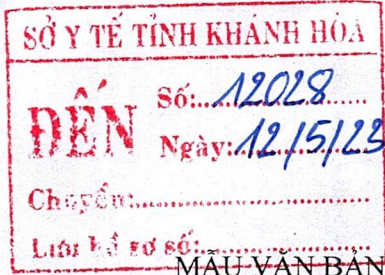 SỞ Y TẾ TỈNH KHÁNH HÒA
ĐẾN
Số:...12028......
Ngày:12/5/23
Chuyển:..............................
Lưu hồ sơ số:....................
MẪU VĂN BẢN